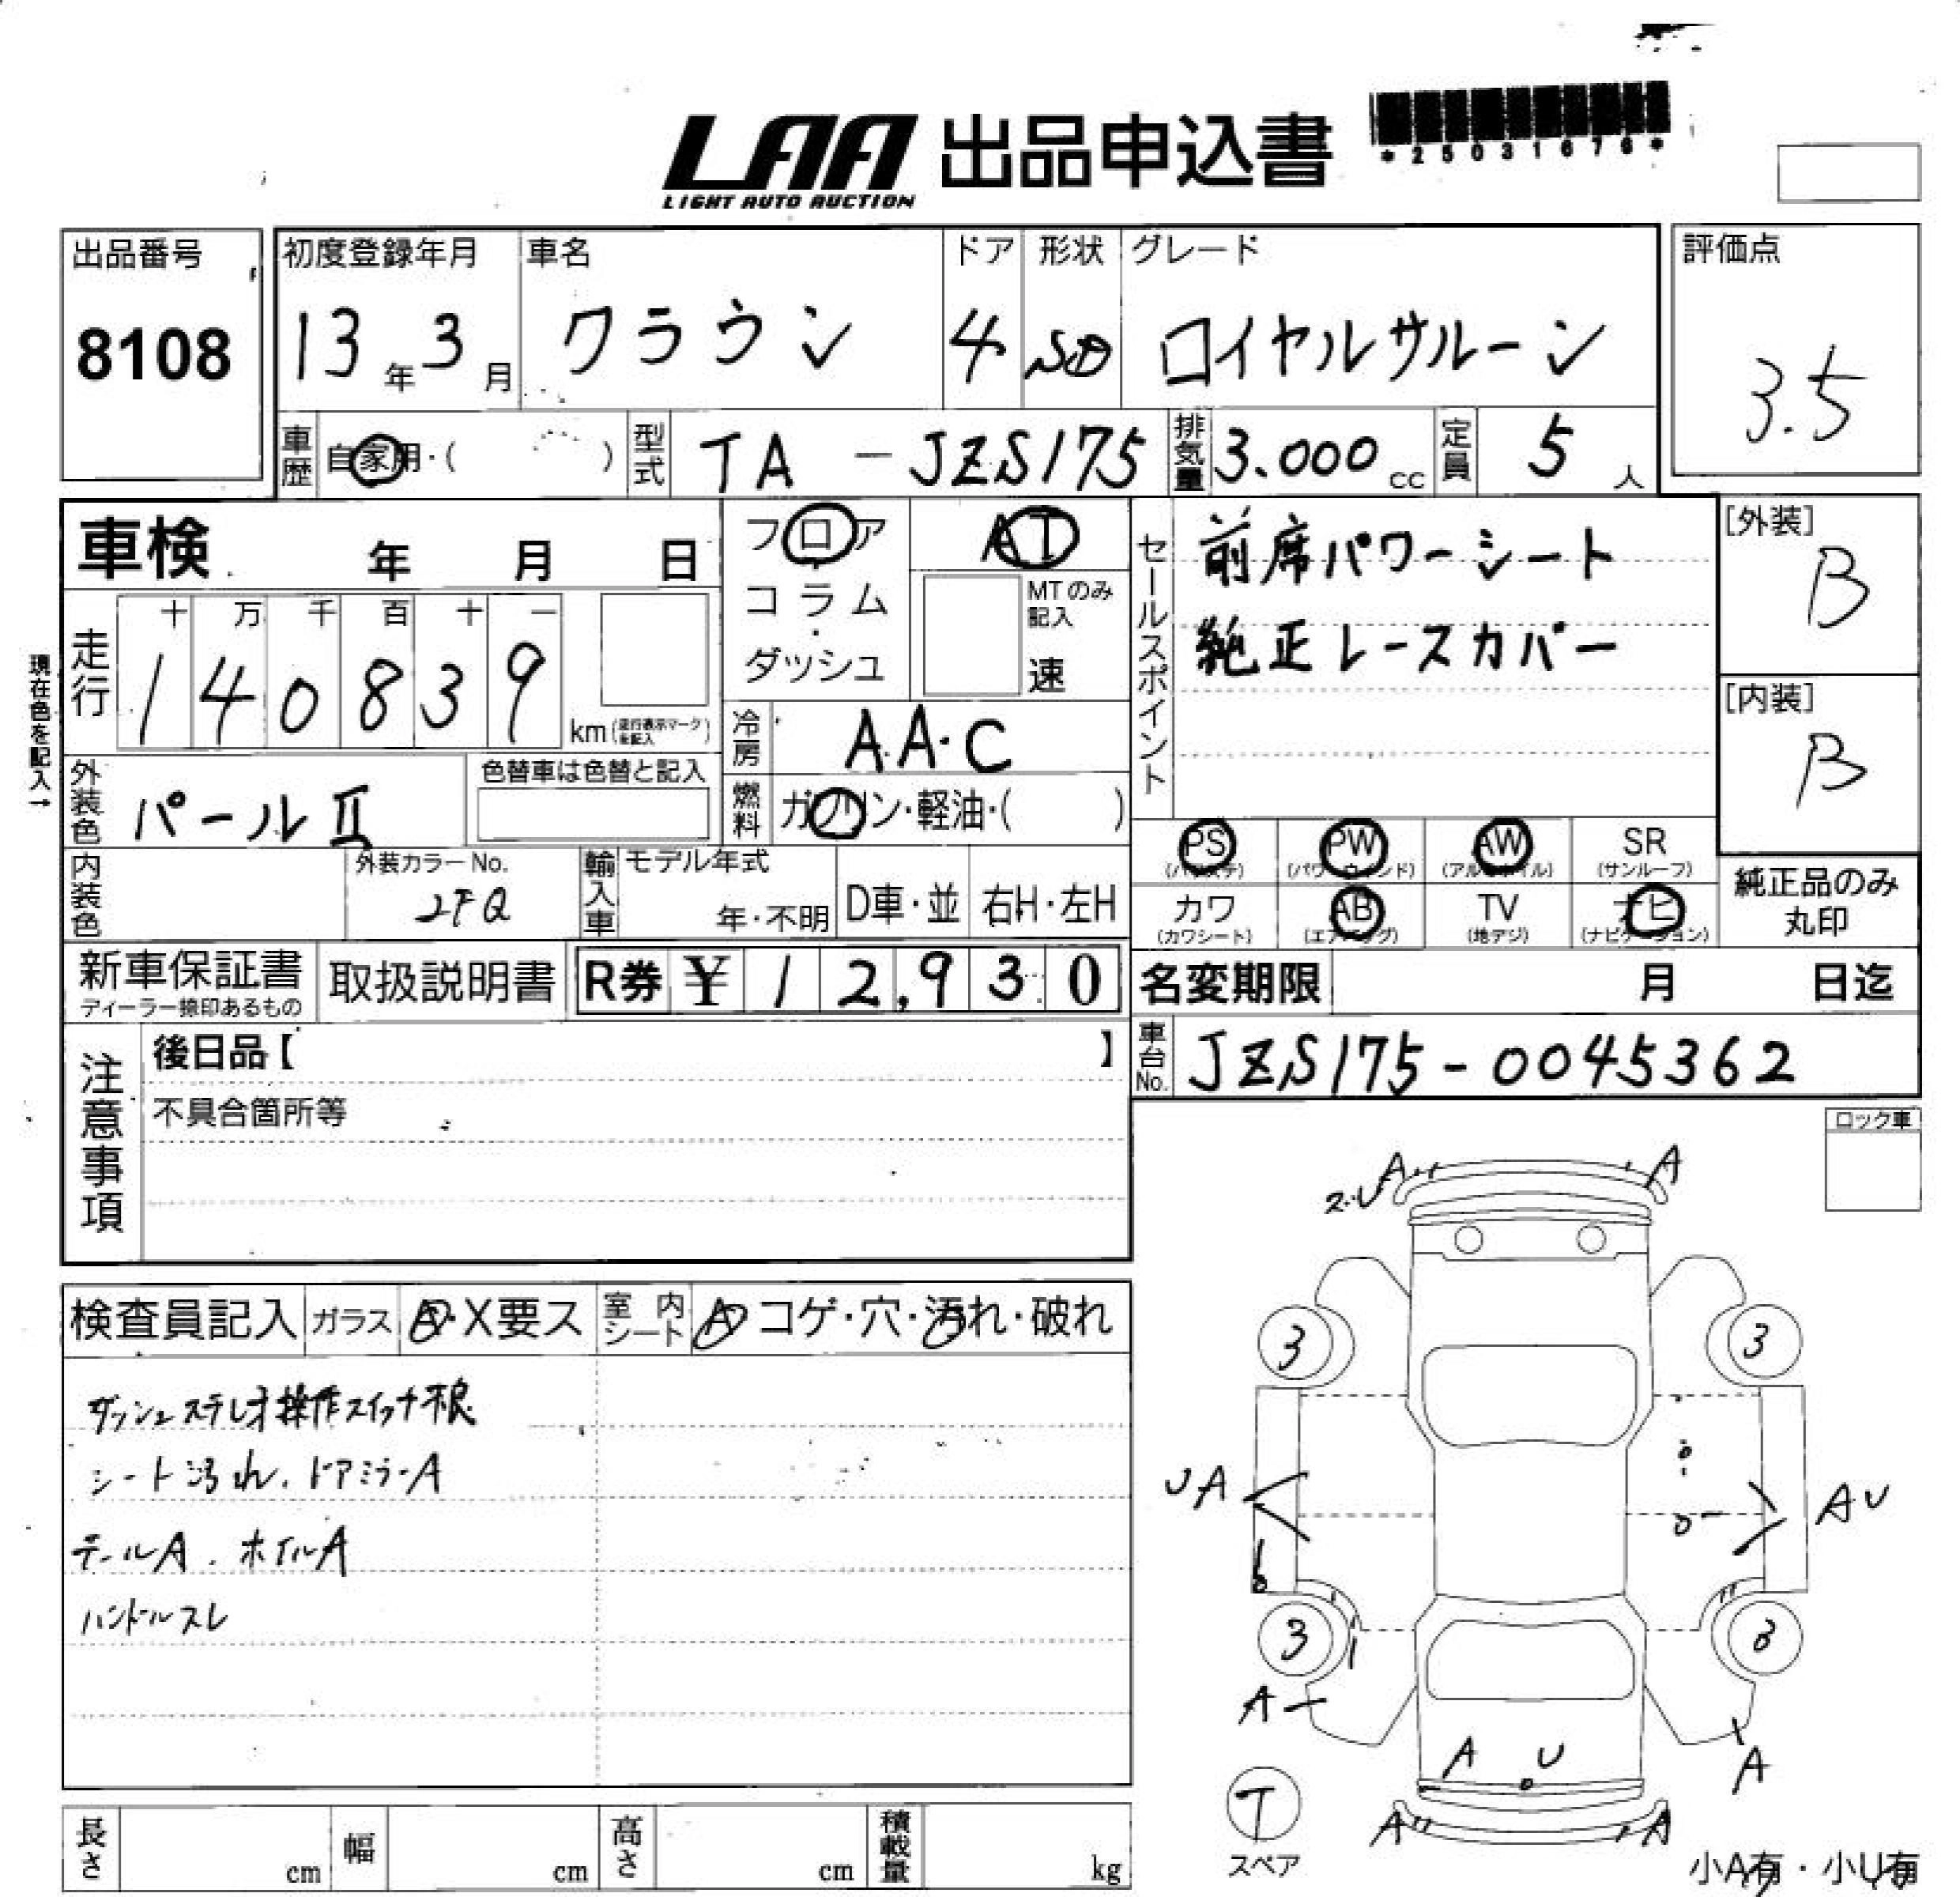 LAA 出品申込書
LIGHT AUTO AUCTION
*25031676*
出品番号
8108
初度登録年月
13年3月
車名
クラウン
ドア
4
形状
SD
グレード
ロイヤルサルーン
評価点
3.5
車歴
自家用・( )
型式
TA-JZS175
排気量
3.000cc
定員
5人
車検 年 月 日
フロア
コラム
・
ダッシュ
AT
MTのみ記入
速
セールスポイント
前席パワーシート
純正レースカバー
[外装]
B
[内装]
B
現在色を記入→
走行
十 万 千 百 十 一
1 4 0 8 3 9
km(走行表示マークを記入)
冷房
AA・C
外装色
パールⅡ
色替車は色替と記入
燃料
ガソリン・軽油・( )
PS
(パワステ)
PW
(パワーウインド)
AW
(アルミホイル)
SR
(サンルーフ)
カワ
(カワシート)
AB
(エアバッグ)
TV
(地デジ)
ナビ
(ナビゲーション)
純正品のみ
丸印
内装色
外装カラーNo.
2FQ
輸入車
モデル年式
年・不明
D車・並
右H・左H
新車保証書
ディーラー捺印あるもの
取扱説明書
R券 ¥ 12,930
名変期限 月 日迄
車台No.
JZS175-0045362
注意事項
後日品【 】
不具合箇所等
ロック車
検査員記入
ガラス
A・X要ス
室内シート
A コゲ・穴・汚れ・破れ
ダッシュステレオ操作スイッチ不良
シート汚れ、ドアミラーA
テールA、ホイルA
ハンドルスレ
A
A
ス・U
3
3
UA
AU
3
3
A
A
A U
A
A
T
スペア
小A有・小U有
長さ cm
幅 cm
高さ cm
積載量 kg